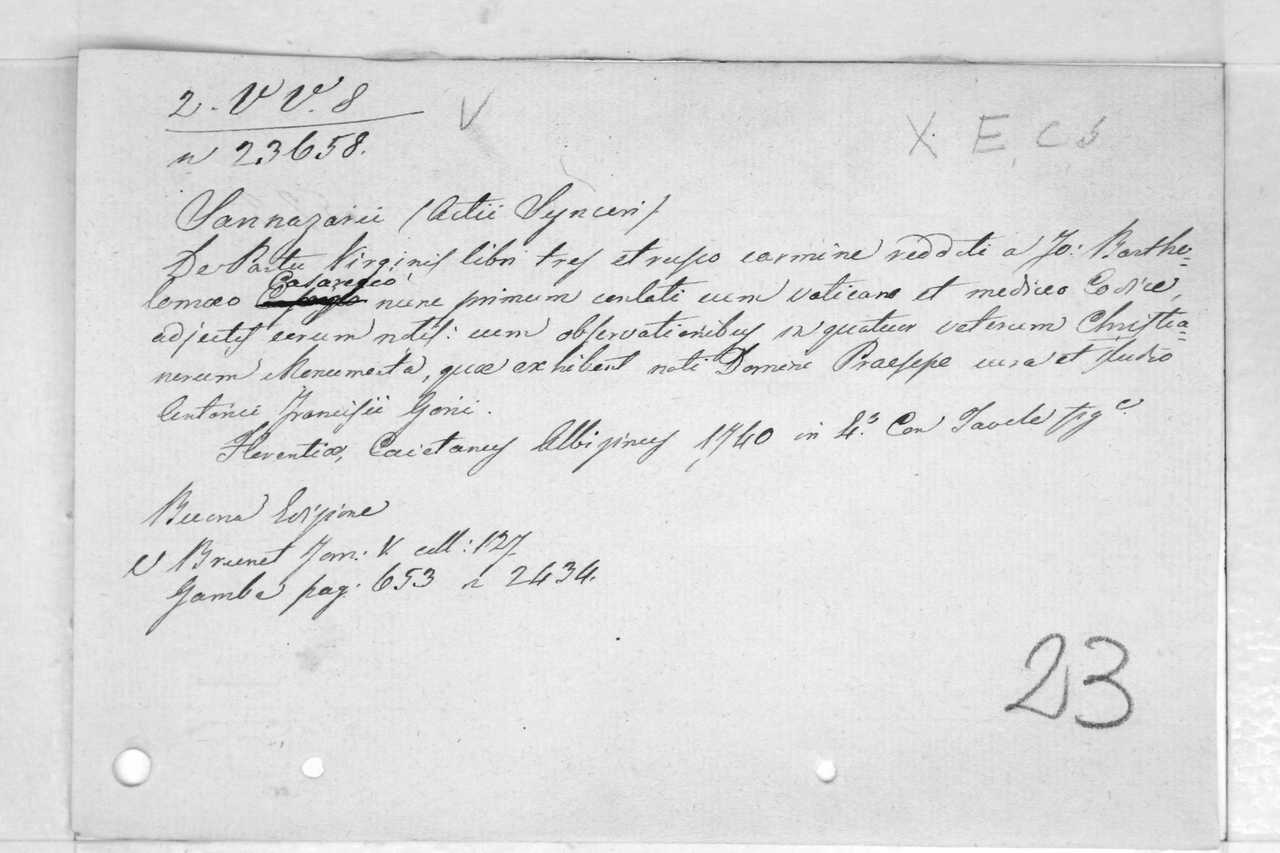 2. V V. 8
V
X. E. C 5
n 23658.
Sannazarii (Actii Synceri)
De Partu Virginis libri tres etrusco carmine redditi a Jo: Bartho=
lomæo Casaregio nunc primum conlati cum vaticano et mediceo Codice,
adjectis eorum notis: cum observationibus in quatuor veterum Christia=
norum Monumenta, quæ exhibent nati Domini Praesepe cura et studio
Antonii Francisci Gorii.
Florentiæ, Caietanus Albizinus, 1740 in 4.º Con Tavole fig.e
Buona Edizione
V Brunet Tom: V coll: 127
Gamba pag: 653 n 2434.
23